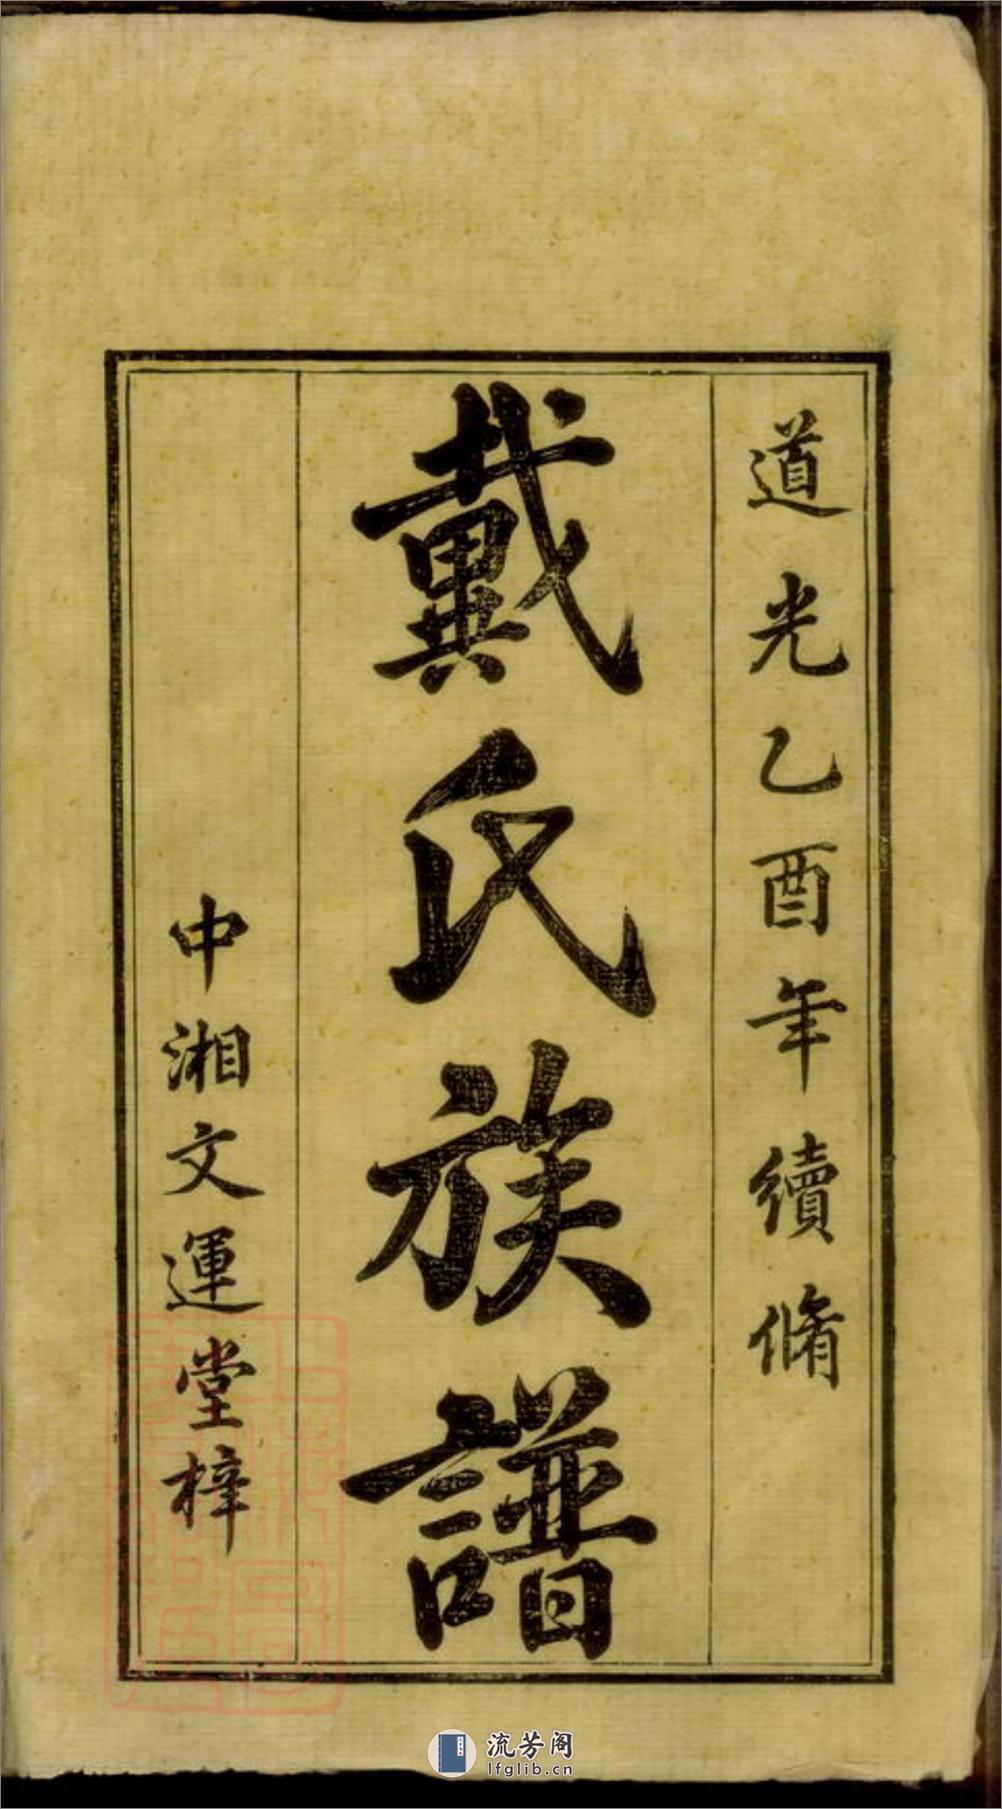 道光乙酉年續脩
戴氏族譜
中湘文運堂梓
流芳阁
lfglib.cn